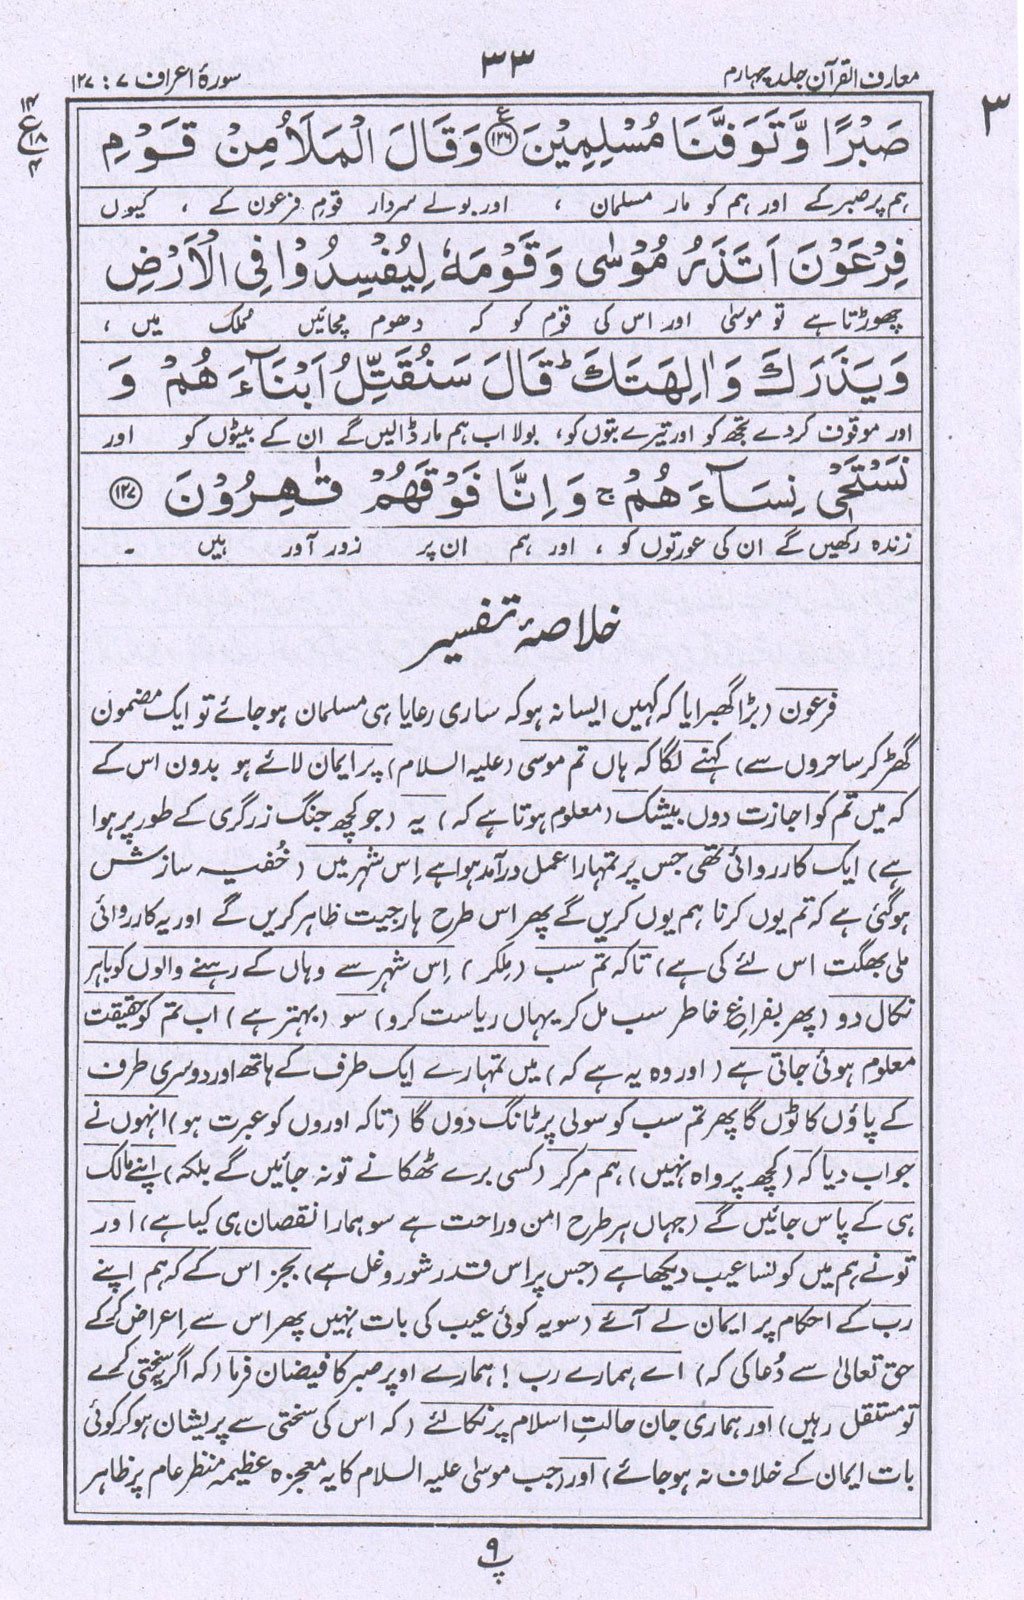 معارف القرآن جلد چہارم
۳۳
سورۂ اعراف ۷ : ۱۲۷
۳
۱۴
ع
۱۸
۴
صَبْرًا وَّتَوَفَّنَا مُسْلِمِيْنَ ﴿۱۲۶﴾ ع وَقَالَ الْمَلَاُ مِنْ قَوْمِ
ہم پر صبر کے اور ہم کو مار مسلمان ، اور بولے سردار قومِ فرعون کے ، کیوں
فِرْعَوْنَ اَتَذَرُ مُوْسٰى وَقَوْمَهٗ لِيُفْسِدُوْا فِي الْاَرْضِ
چھوڑتا ہے تو موسیٰ اور اس کی قوم کو کہ دھوم مچائیں مُلک میں ،
وَيَذَرَكَ وَاٰلِهَتَكَ ؕ قَالَ سَنُقَتِّلُ اَبْنَآءَهُمْ وَ
اور موقوف کر دے تجھ کو اور تیرے بتوں کو، بولا اب ہم مار ڈالیں گے ان کے بیٹوں کو اور
نَسْتَحْيٖ نِسَآءَهُمْ ج وَاِنَّا فَوْقَهُمْ قٰهِرُوْنَ ﴿۱۲۷﴾
زندہ رکھیں گے ان کی عورتوں کو ، اور ہم ان پر زور آور ہیں ۔
خلاصۂ تفسیر
فرعون (بڑا گھبرایا کہ کہیں ایسا نہ ہو کہ ساری رعایا ہی مسلمان ہو جائے تو ایک مضمون
گھڑ کر ساحروں سے) کہنے لگا کہ ہاں تم موسیٰ (علیہ السلام) پر ایمان لائے ہو بدون اس کے
کہ میں تم کو اجازت دوں بیشک (معلوم ہوتا ہے کہ) یہ (جو کچھ جنگ زرگری کے طور پر ہوا
ہے) ایک کارروائی تھی جس پر تمہارا عمل درآمد ہوا ہے اِس شہر میں (خُفیہ سازش
ہو گئی ہے کہ تم یوں کرنا ہم یوں کریں گے پھر اس طرح ہار جیت ظاہر کریں گے اور یہ کارروائی
ملی بھگت اس لئے کی ہے) تاکہ تم سب (مِلکر) اِس شہر سے وہاں کے رہنے والوں کو باہر
نکال دو (پھر بفراغِ خاطر سب مل کر یہاں ریاست کرو) سو (بہتر ہے) اب تم کو حقیقت
معلوم ہوئی جاتی ہے (اور وہ یہ ہے کہ) میں تمہارے ایک طرف کے ہاتھ اور دوسری طرف
کے پاؤں کاٹوں گا پھر تم سب کو سولی پر ٹانگ دوں گا (تاکہ اوروں کو عبرت ہو) انہوں نے
جواب دیا کہ (کچھ پرواہ نہیں) ہم مر کر (کسی برے ٹھکانے تو نہ جائیں گے بلکہ) اپنے مالک
ہی کے پاس جائیں گے (جہاں ہر طرح امن و راحت ہے سو ہمارا نقصان ہی کیا ہے) اور
تو نے ہم میں کونسا عیب دیکھا ہے (جس پر اس قدر شور و غل ہے) بجز اس کے کہ ہم اپنے
رب کے احکام پر ایمان لے آئے (سو یہ کوئی عیب کی بات نہیں پھر اس سے اِعراض کر کے
حق تعالیٰ سے دُعا کی کہ) اے ہمارے رب ! ہمارے اوپر صبر کا فیضان فرما (کہ اگر سختی کرے
تو مستقل رہیں) اور ہماری جان حالتِ اسلام پر نکالئے (کہ اس کی سختی سے پریشان ہو کر کوئی
بات ایمان کے خلاف نہ ہو جائے) اور (جب موسیٰ علیہ السلام کا یہ معجزہ عظیمہ منظر عام پر ظاہر
۹
پ